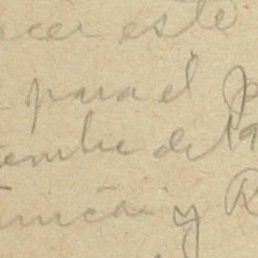 cer este
para el p
iembre del 9
unción y R